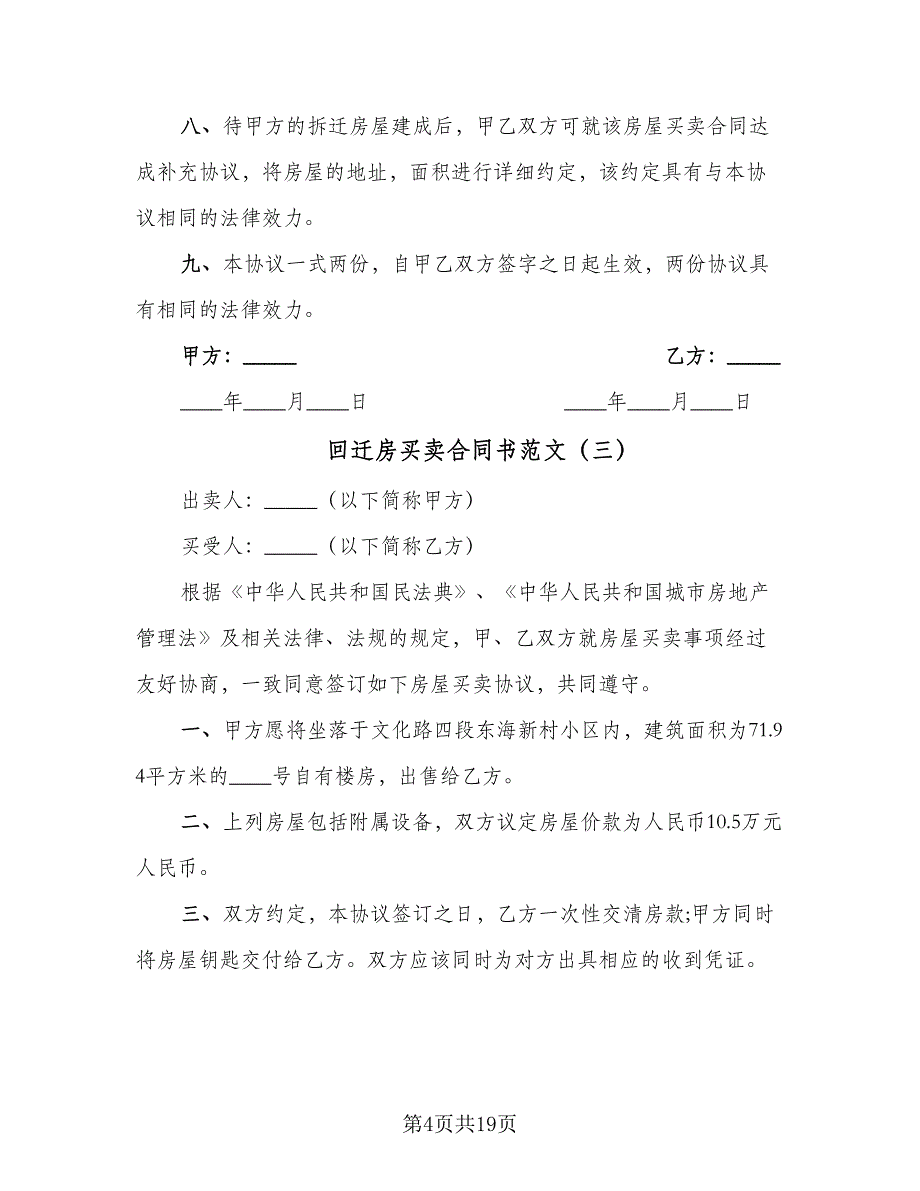 八、待甲方的拆迁房屋建成后，甲乙双方可就该房屋买卖合同达
成补充协议，将房屋的地址，面积进行详细约定，该约定具有与本协
议相同的法律效力。
九、本协议一式两份，自甲乙双方签字之日起生效，两份协议具
有相同的法律效力。
甲方：_____ 乙方：_____
____年____月____日 ____年____月____日
回迁房买卖合同书范文（三）
出卖人：_____（以下简称甲方）
买受人：_____（以下简称乙方）
根据《中华人民共和国民法典》、《中华人民共和国城市房地产
管理法》及相关法律、法规的规定，甲、乙双方就房屋买卖事项经过
友好协商，一致同意签订如下房屋买卖协议，共同遵守。
一、甲方愿将坐落于文化路四段东海新村小区内，建筑面积为71.9
4平方米的____号自有楼房，出售给乙方。
二、上列房屋包括附属设备，双方议定房屋价款为人民币10.5万元
人民币。
三、双方约定，本协议签订之日，乙方一次性交清房款;甲方同时
将房屋钥匙交付给乙方。双方应该同时为对方出具相应的收到凭证。
第4页共19页